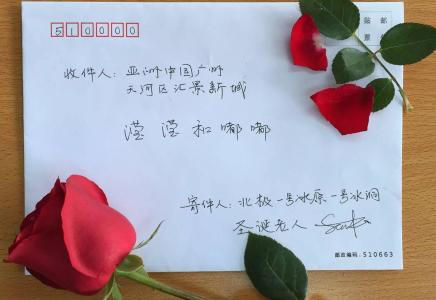 510000
贴 邮
票 处
收件人：亚洲中国广州
天河区汇景新城
滢滢和嘟嘟
寄件人：北极一号冰原一号冰洞
圣诞老人
邮政编码：510663